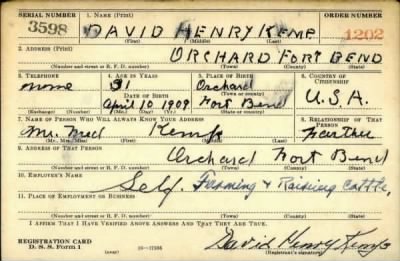 SERIAL NUMBER 1. NAME (Print) ORDER NUMBER
3598 DAVID HENRY Kemp 1202
(First) (Middle) (Last)
2. ADDRESS (Print)
ORCHARD FORT BEND
(Number and street or R. F. D. number) (Town) (County) (State)
3. TELEPHONE 4. AGE IN YEARS 5. PLACE OF BIRTH 6. COUNTRY OF CITIZENSHIP
none 31 Orchard
DATE OF BIRTH (Town or county)
April 10 1909 Fort Bend U.S.A.
(Exchange) (Number) (Mo.) (Day) (Yr.) (State or country)
7. NAME OF PERSON WHO WILL ALWAYS KNOW YOUR ADDRESS 8. RELATIONSHIP OF THAT PERSON
Mr. Kemp Farther
(Mr., Mrs., Miss) (First) (Middle) (Last)
9. ADDRESS OF THAT PERSON
Orchard Fort Bend
(Number and street or R. F. D. number) (Town) (County) (State)
10. EMPLOYER'S NAME
Self. Farming & Raising Cattle,
11. PLACE OF EMPLOYMENT OR BUSINESS
(Number and street or R. F. D. number) (Town) (County) (State)
I AFFIRM THAT I HAVE VERIFIED ABOVE ANSWERS AND THAT THEY ARE TRUE.
REGISTRATION CARD
D. S. S. Form 1 16—17105 David Henry Kemp
(Registrant's signature)